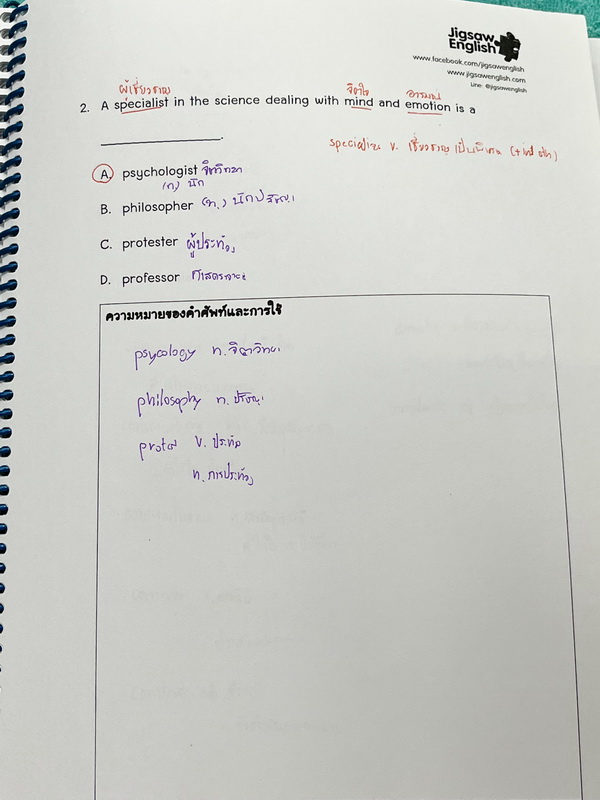 Jigsaw
English
www.facebook.com/jigsawenglish
www.jigsawenglish.com
Line @jigsawenglish
ผู้เชี่ยวชาญ จิตใจ อารมณ์
2. A specialist in the science dealing with mind and emotion is a
____________.
v. เชี่ยวชาญเป็นพิเศษ
A. psychologist จิตวิทยา
(n) นัก
B. philosopher (n.) นักปรัชญา
C. protester ผู้ประท้วง
D. professor ศาสตราจารย์
ความหมายของคำศัพท์และการใช้
psycology n. จิตวิทยา
philosophy n. ปรัชญา
v. ประท้วง
n. การประท้วง